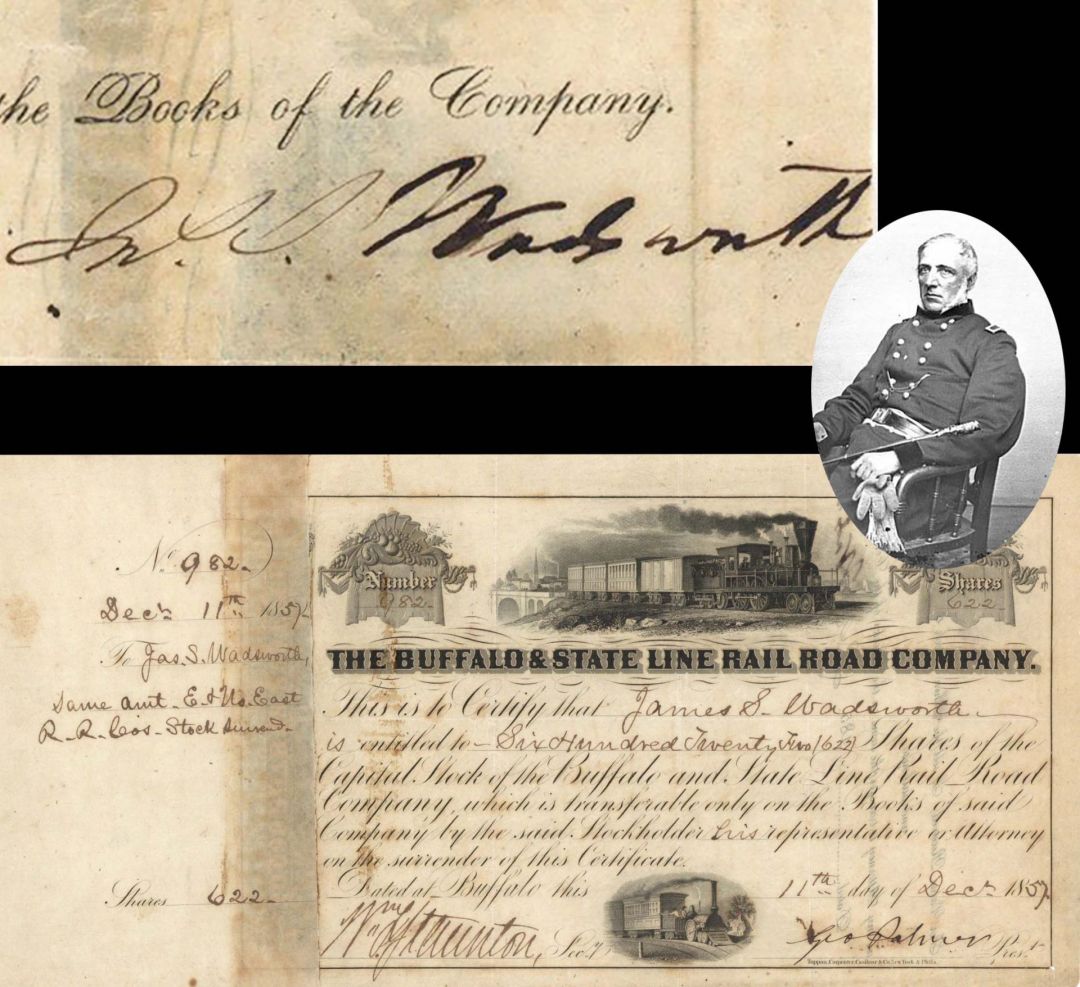 the Books of the Company.
Ja. S. Wadsworth
No. 982.
Decr. 11th 1857
To Jas. S. Wadsworth,
Same amt. E. & No. East
R. R. Cos. Stock surrend.
Shares 622.
Number
982
Shares
622
THE BUFFALO & STATE LINE RAIL ROAD COMPANY.
This is to Certify that James S. Wadsworth
is entitled to Six Hundred Twenty Two (622) Shares of the
Capital Stock of the Buffalo and State Line Rail Road
Company, which is transferable only on the Books of said
Company by the said Stockholder his representative or Attorney
on the surrender of this Certificate.
Dated at Buffalo this 11th day of Decr. 1857
Staunton, Secy.
Geo. Palmer Prest.
Toppan, Carpenter, Casilear & Co. New York & Phila.